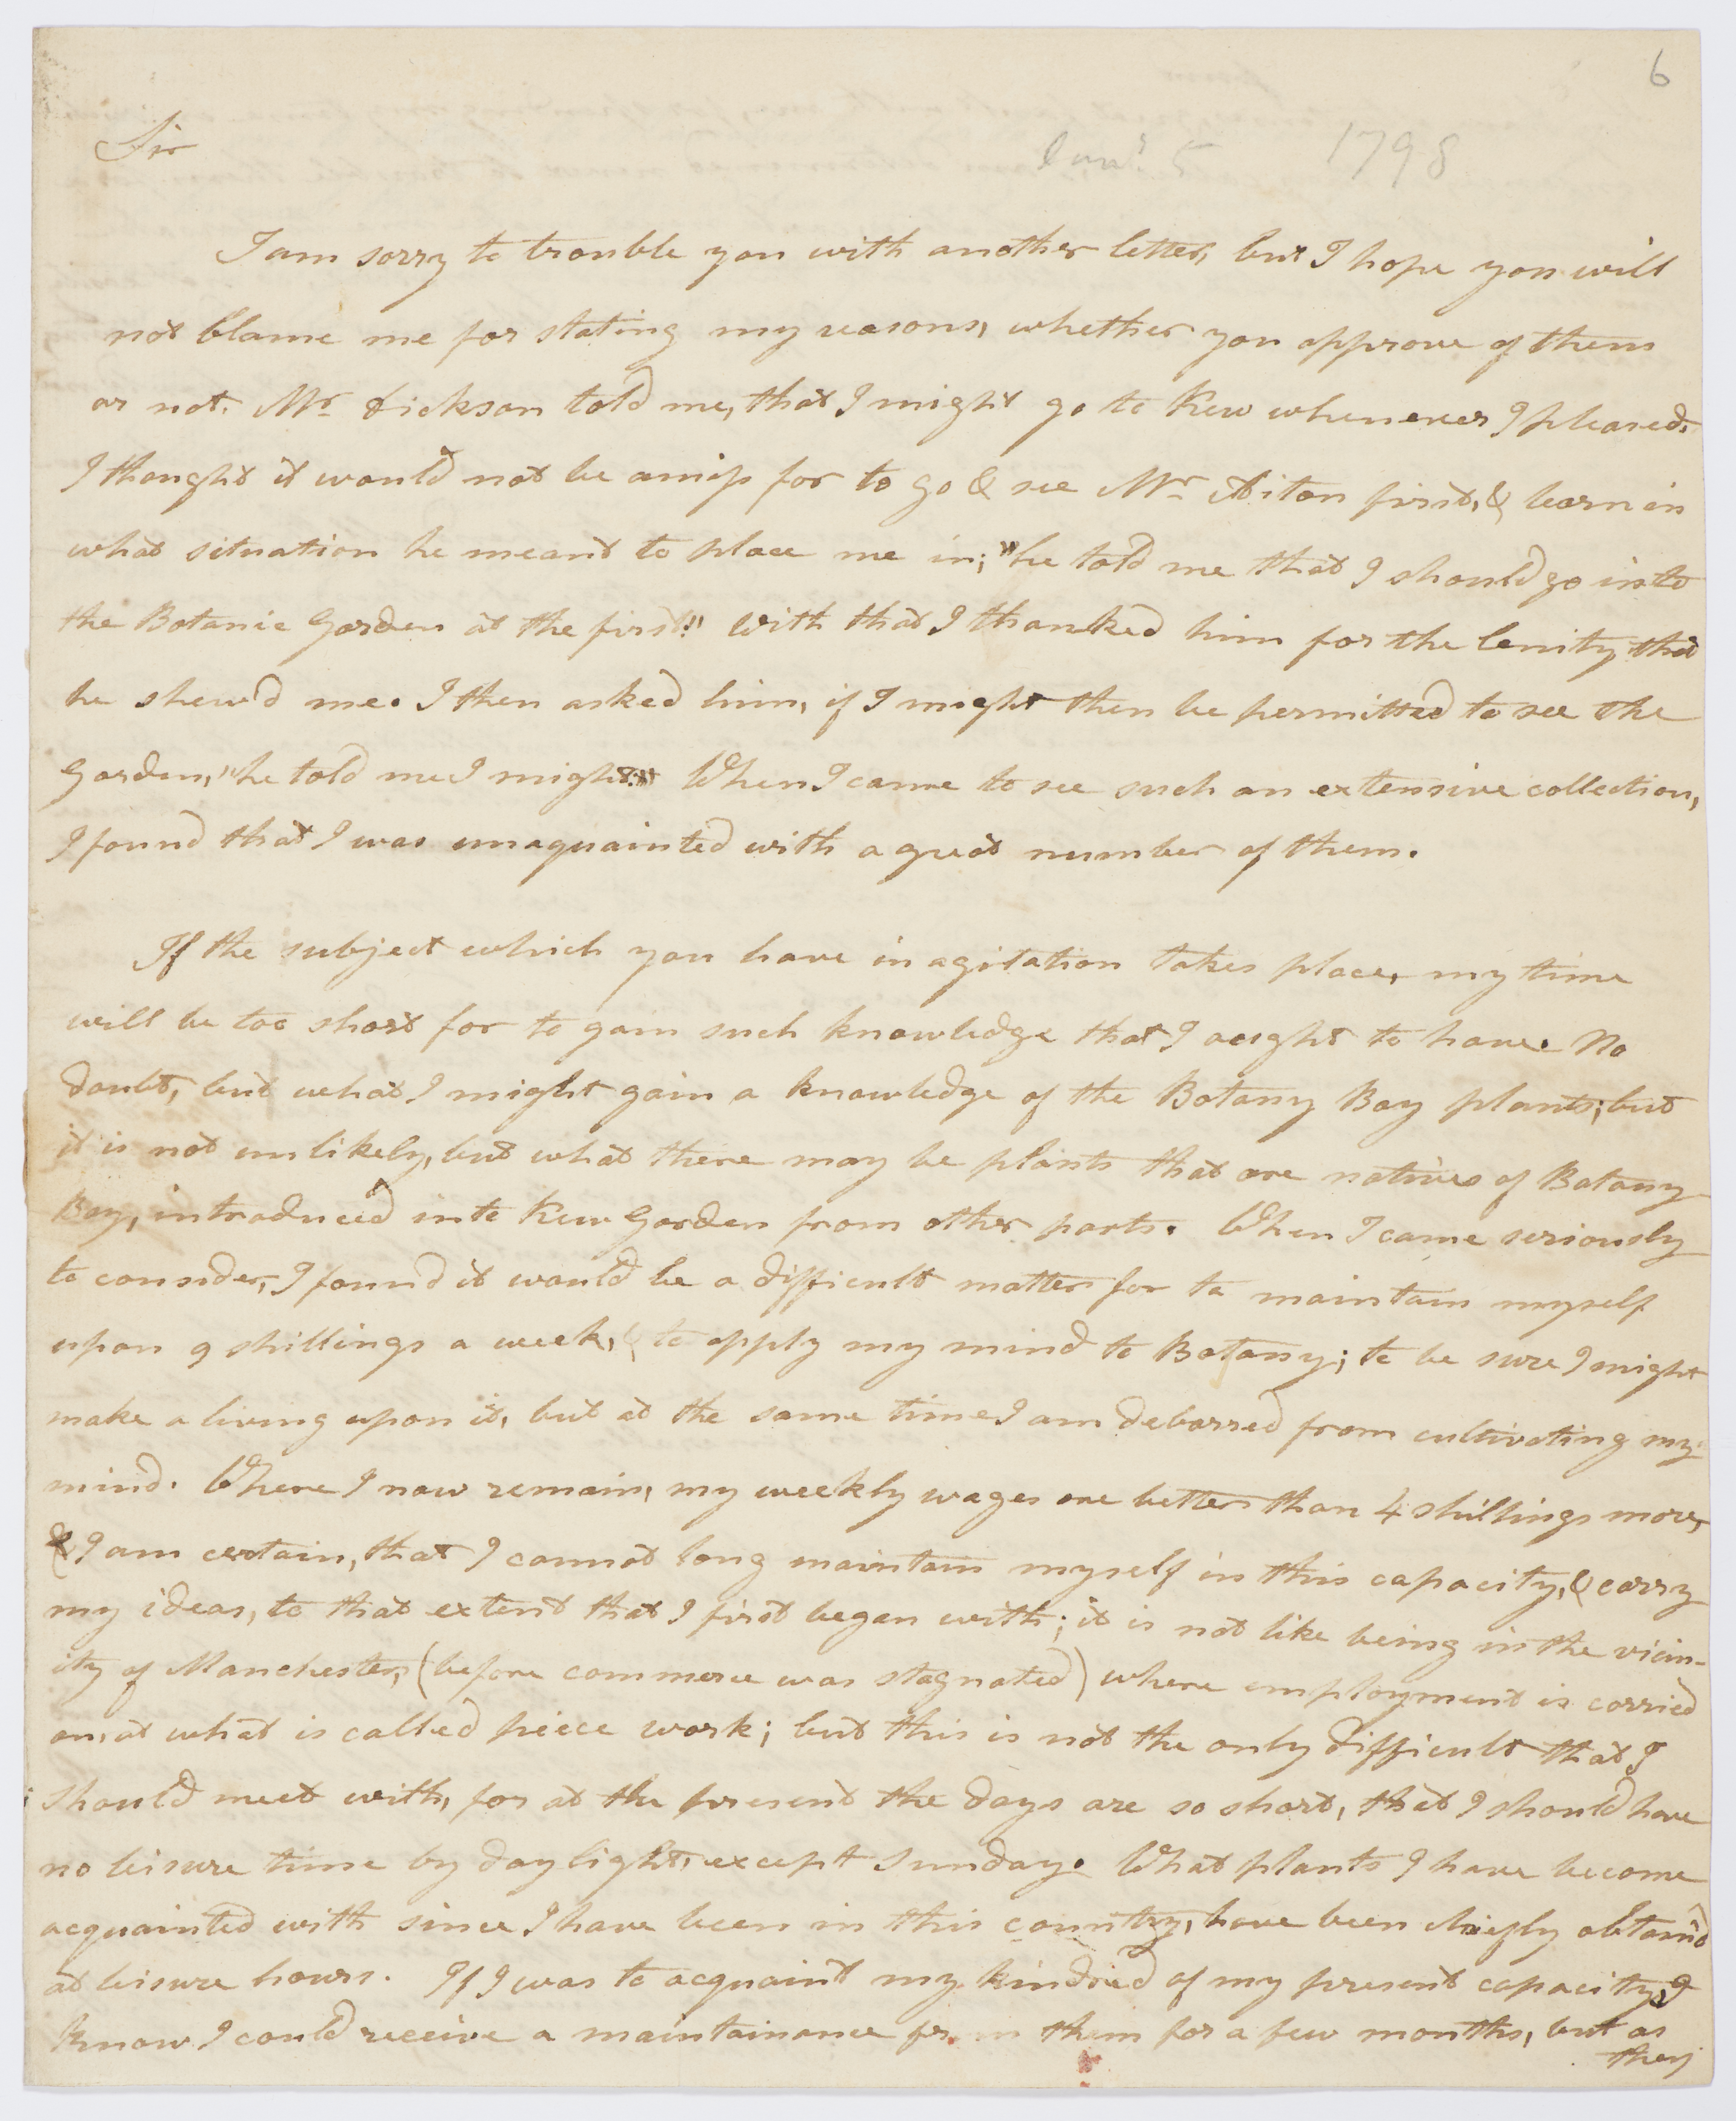 6
Sir
Janr. 5 1798
I am sorry to trouble you with another letter, but I hope you will
not blame me for stating my reasons, whether you approve of them
or not. Mr. Dickson told me, that I might go to Kew whenever I pleased.
I thought it would not be amiss for to go & see Mr. Aiton first, & learn in
what situation he meant to place me in; "he told me that I should go into
the Botanic Garden at the first." With that I thanked him for the lenity that
he shew'd me. I then asked him, if I might then be permitted to see the
Garden, "he told me I might." When I came to see such an extensive collection,
I found that I was unaquainted with a great number of them.
If the subject which you have in agitation takes place, my time
will be too short for to gain such knowledge that I ought to have. No
doubt, but what I might gain a knowledge of the Botany Bay plants; but
it is not unlikely, but what there may be plants that are natives of Botany
Bay, introduced into Kew Garden from other parts. When I came seriously
to consider, I found it would be a difficult matter for to maintain myself
upon 9 shillings a week, & to apply my mind to Botany; to be sure I might
make a living upon it, but at the same time I am debarred from cultivating my
mind. Where I now remain, my weekly wages are better than 4 shillings more,
& I am certain, that I cannot long maintain myself in this capacity, & carry
my ideas, to that extent that I first began with; it is not like being in the vicin-
ity of Manchester, (before commerce was stagnated) where employment is carried
on, at what is called piece work; but this is not the only difficult that I
should meet with, for at the present the days are so short, that I should have
no leisure time by daylight, except Sunday. What plants I have become
acquainted with since I have been in this country, have been chiefly obtain'd
at leisure hours. If I was to acquaint my kindred of my present capacity, I
know I could receive a maintainance from them for a few months, but as
they